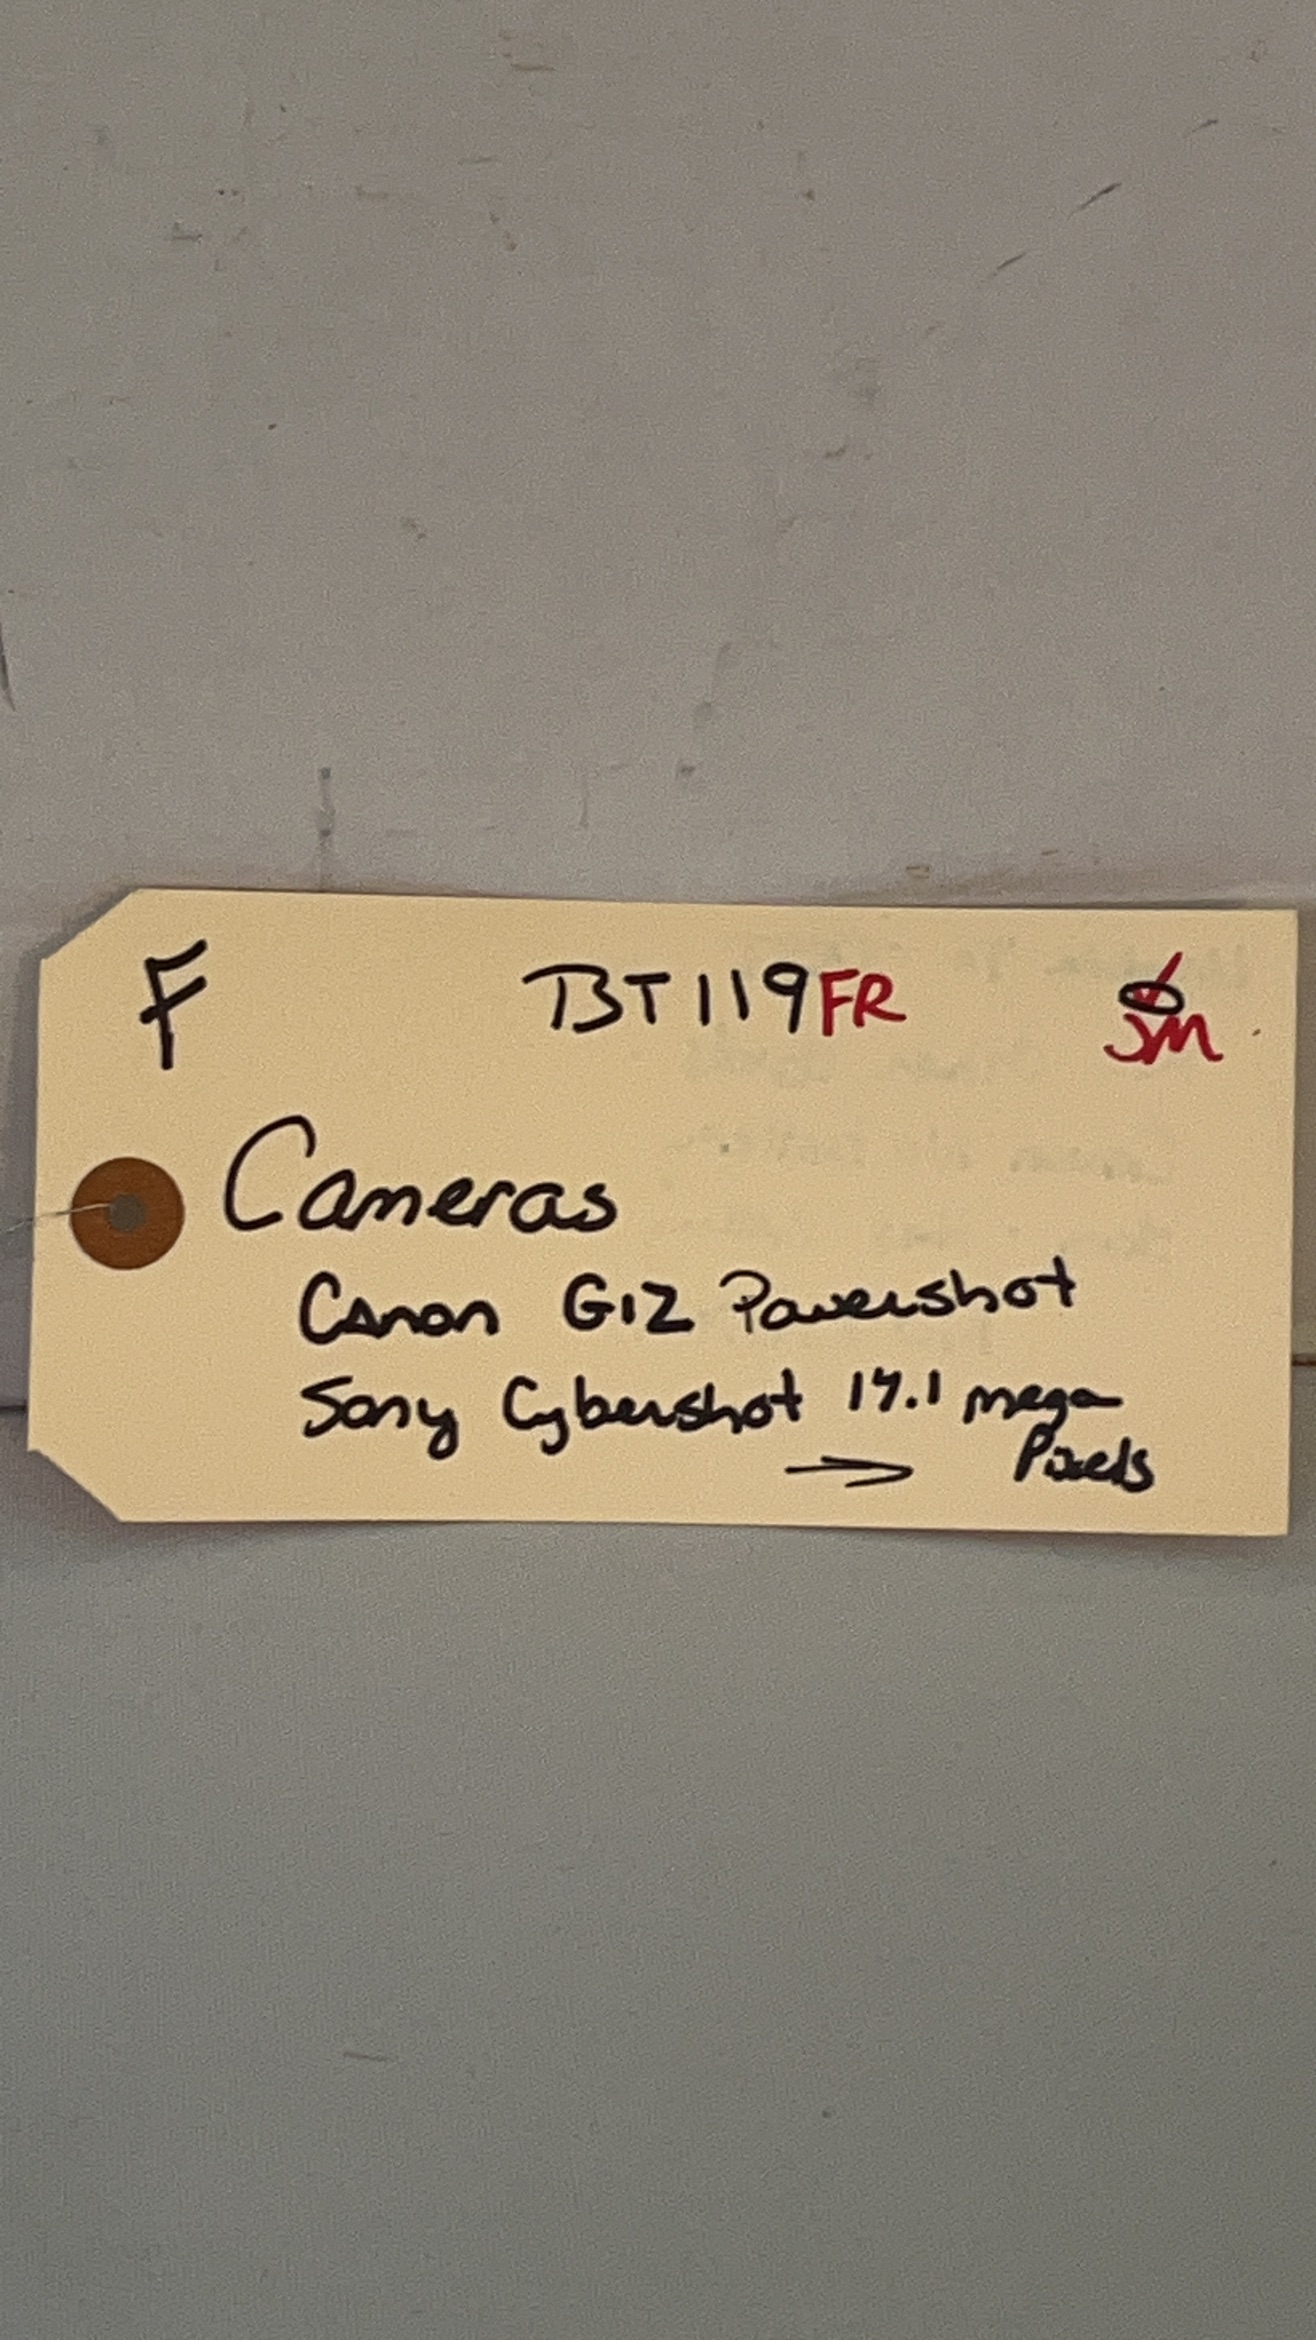 F BT119FR SM
Cameras
Canon G12 Powershot
Sony Cybershot 14.1 mega
→ Pixels